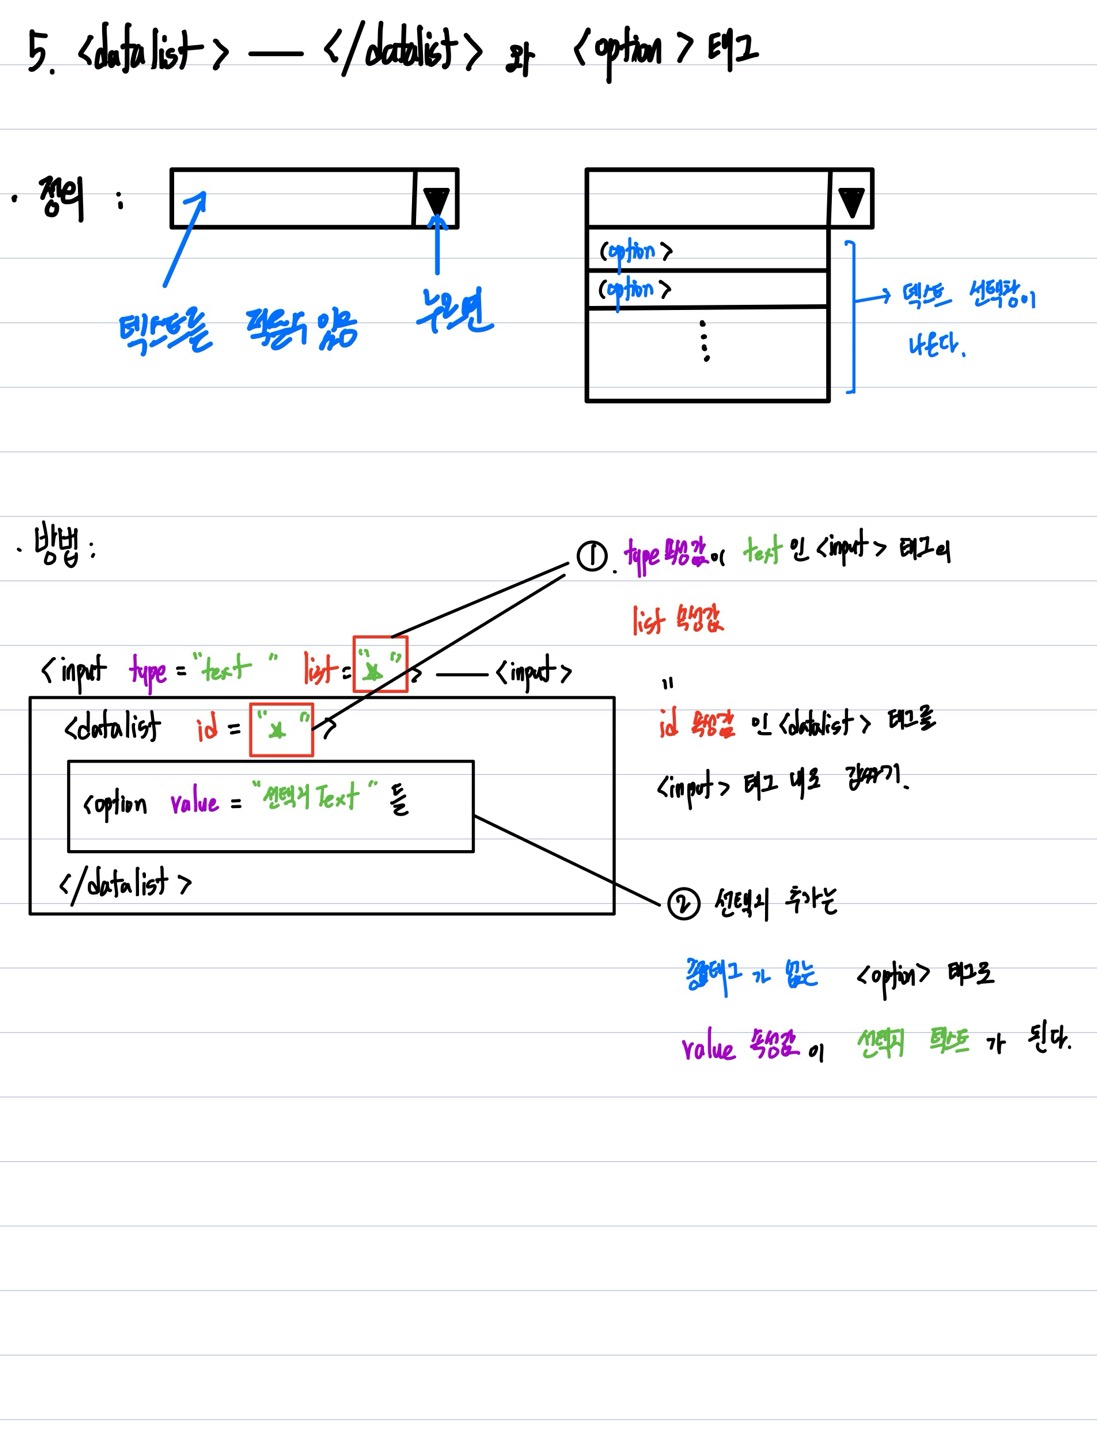 5. <datalist> — </datalist> 와 <option> 태그
· 정의 :
텍스트를 적을수 있음
누르면
<option>
<option>
→ 텍스트 선택창이
나온다.
· 방법 :
①. type 속성값이 text 인 <input> 태그의
list 속성값
"
id 속성값 인 <datalist> 태그를
<input> 태그 내로 감싸기.
<input type = "text" list = "★"> — <input>
<datalist id = "★" >
<option value = "선택지 Text" 들
</datalist>
② 선택지 추가는
종료태그가 없는 <option> 태그로
value 속성값이 선택지 텍스트가 된다.